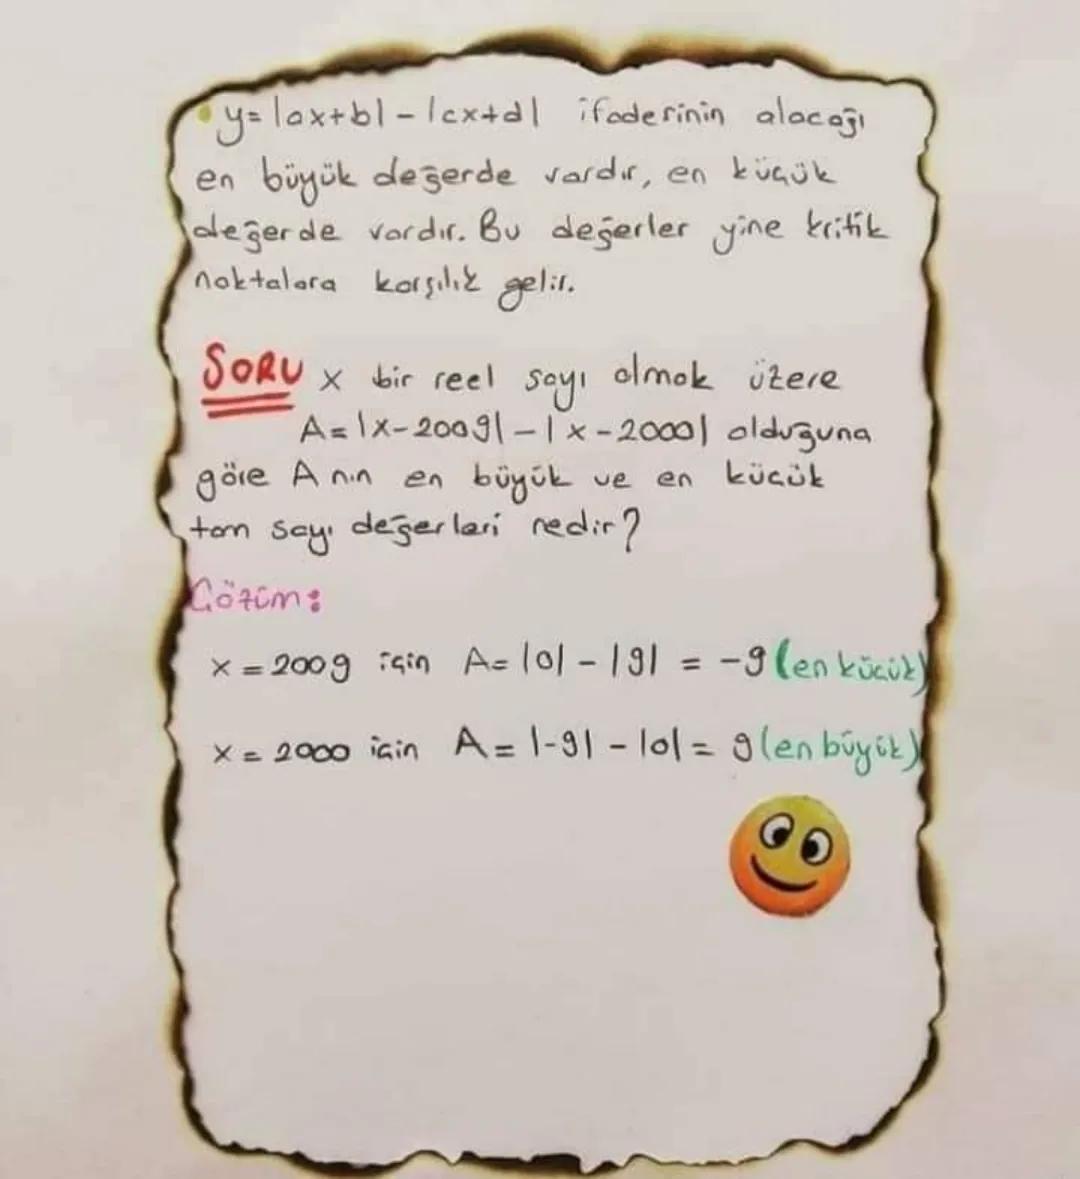 y=|ax+b|-|cx+d| ifadesinin alacağı
en büyük değerde vardır, en küçük
değerde vardır. Bu değerler yine kritik
noktalara karşılık gelir.
SORU x bir reel sayı olmak üzere
A=|x-2009|-|x-2000| olduğuna
göre A nın en büyük ve en küçük
tam sayı değerleri nedir?
Çözüm:
x=2009 için A=|0|-|9|=-9 (en küçük)
x=2000 için A=|-9|-|0|=9 (en büyük)